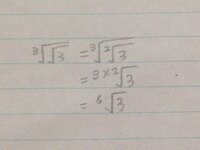 ³√√3 = ³√²√3
= ³ˣ²√3
= ⁶√3